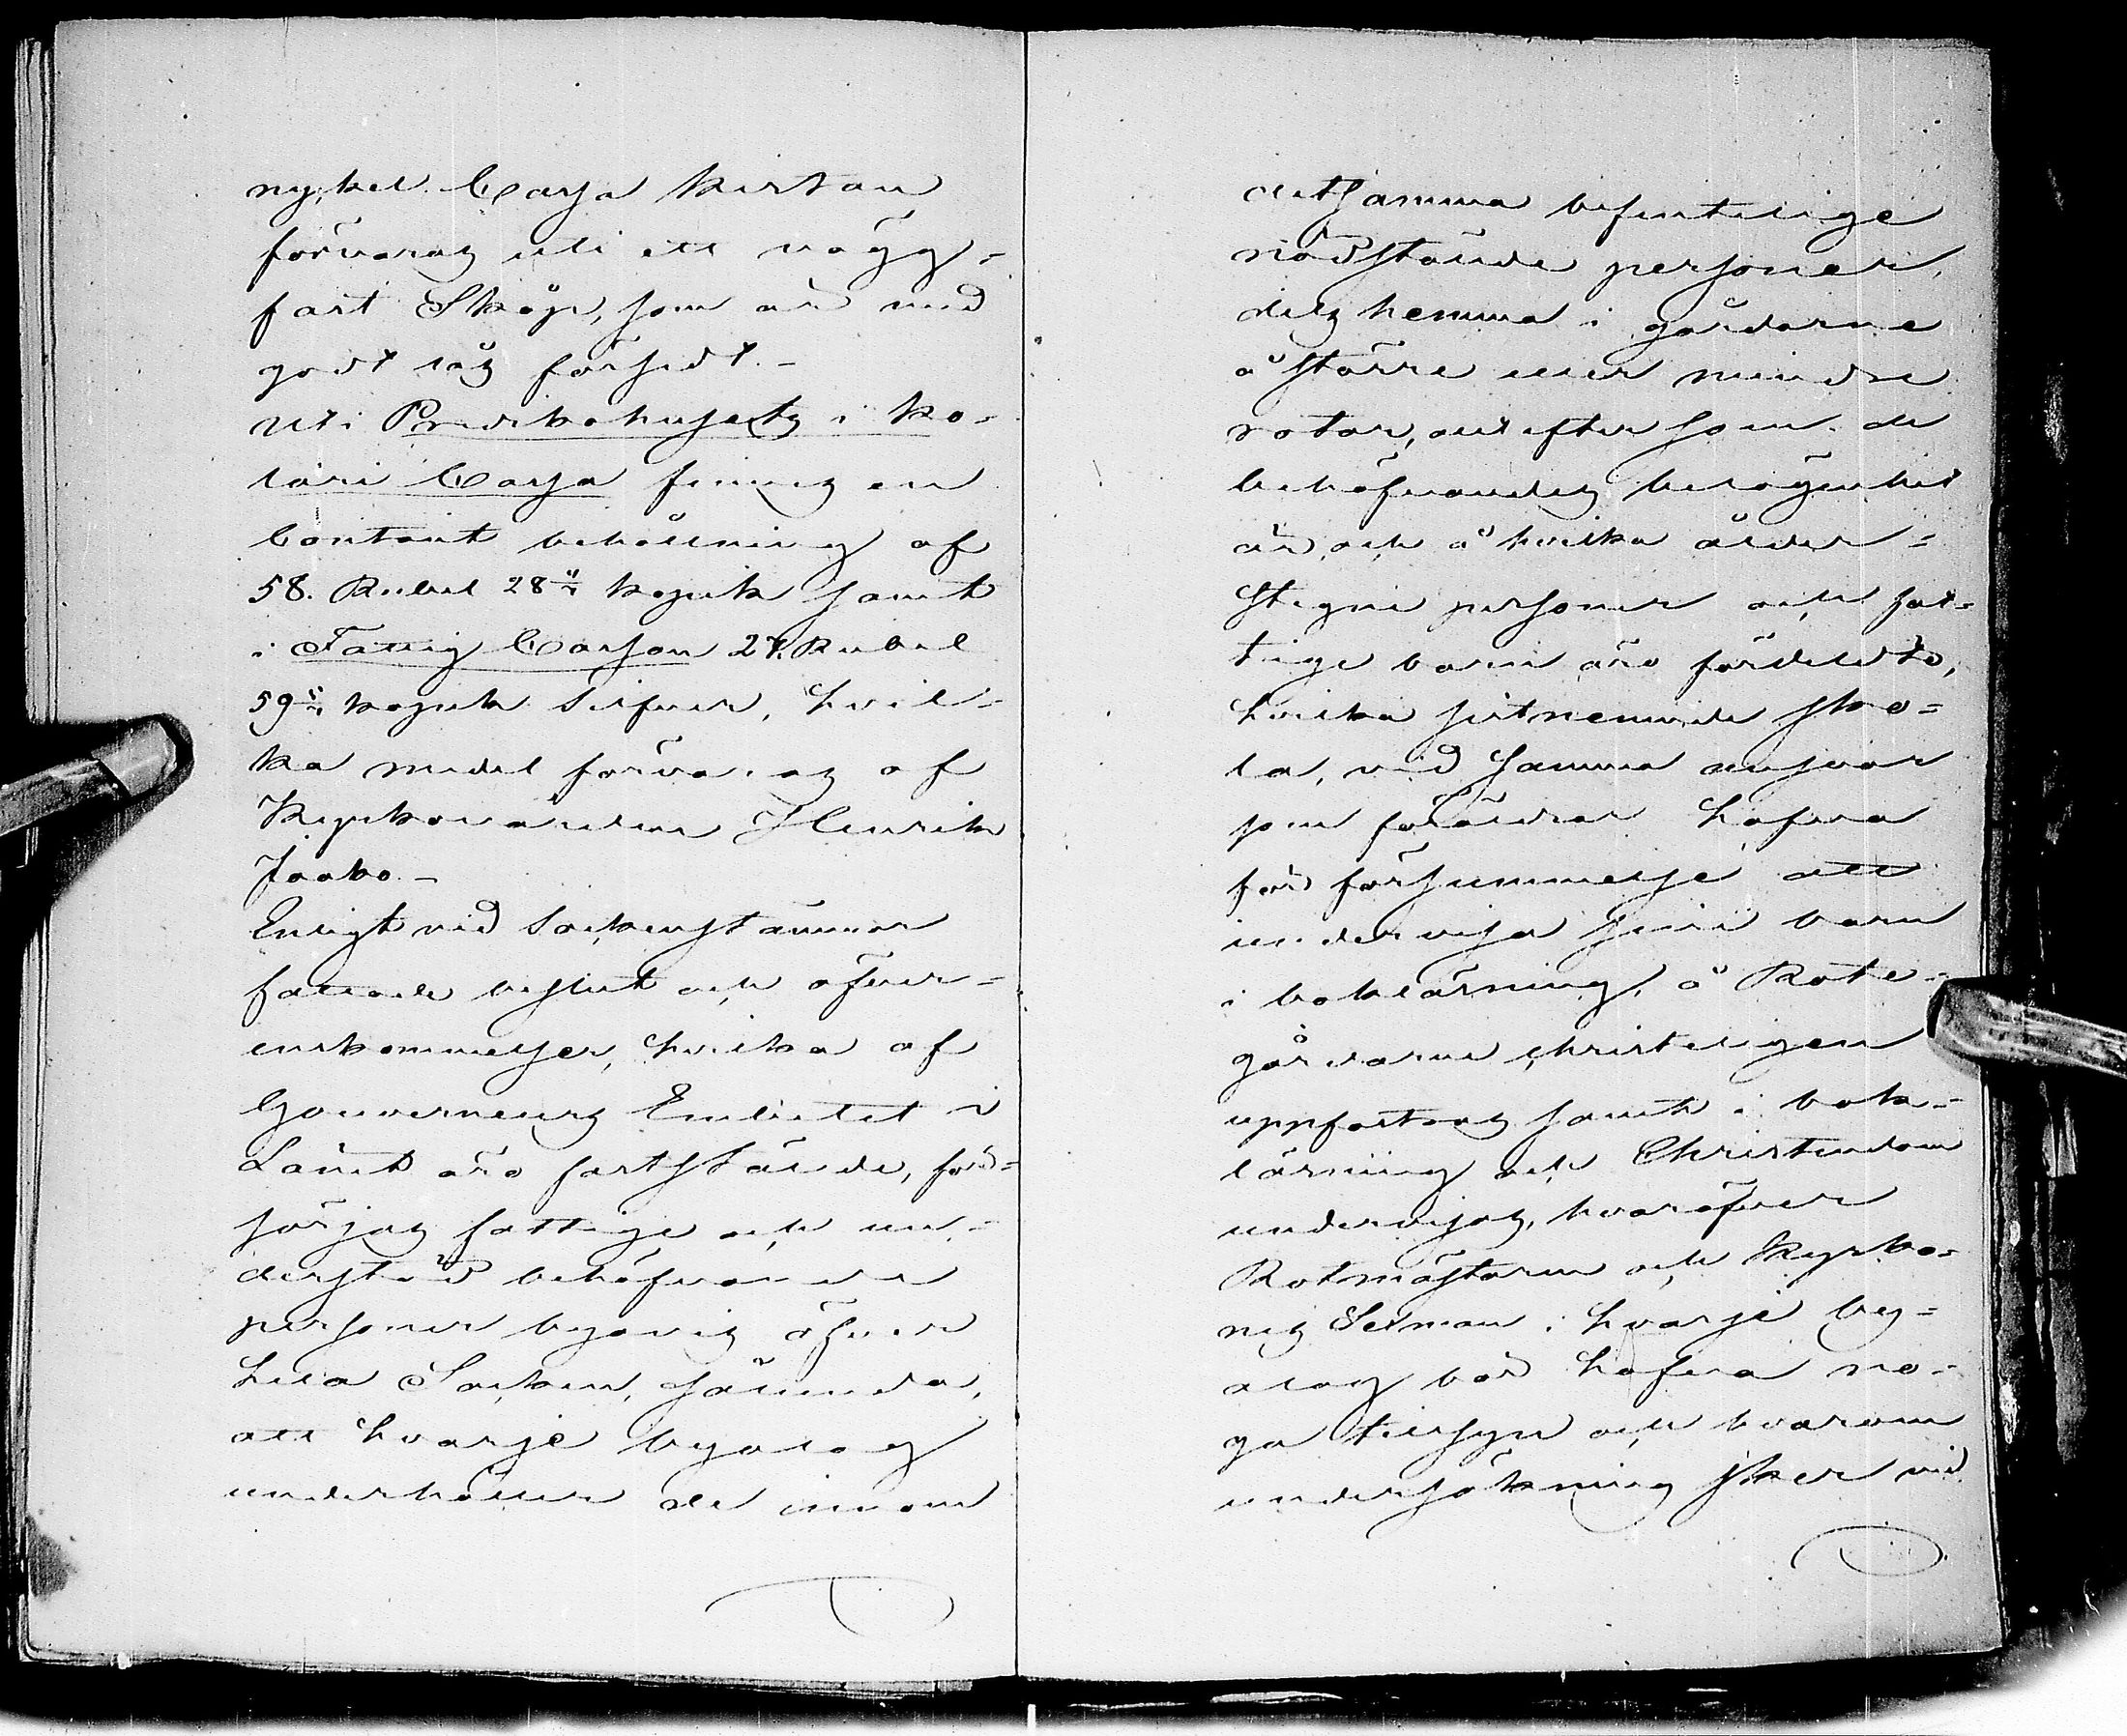 nykel. Cassa kistan
förvaras uti ett vägg-
fast Skåp, som är med
godt lås försedt. -
Uti Predikohusets i Ko-
lari Cassa finnes en
Contant behållning af
58. Rubel 28 4/7 kopek samt
i Fattig Cassan 27. Rubel
59 3/7 kopek Silfver, hvil-
ka medel förvaras af
Kyrkovärden Henrik
Jaako. -
Enligt vid Sockenstämmor
fattade beslut och öfver-
enskommelser, hvilka af
Gouverneurs Embetet i
Länet äro fastställde, för-
sörjas fattige och un-
derstöd behöfvande
personer byavis öfver
hela Socken, sålunda,
att hvarje byalag
underhåller de inom
detsamma befintelige
nödstälde personer,
dels hemma i gårdarne
å större eller mindre
rotar, allt efter som de
behöfvandes belägenhet
är, och å hvilka ålder-
stegne personer och fat-
tige barn äro fördelade,
hvilka sistnemnde sko-
la, vid samma ansvar
som föräldrar hafva
för försummelse att
undervisa sine barn
i boklärning, å Rote-
gårdarne christeligen
uppfostras samt i bok-
lärning och Christendom
undervisas, hvaröfver
Rotmästaren och Kyrko-
nes Sexman i hvarje by-
alag bör hafva no-
ga tillsyn och hvarom
undersökning sker vid